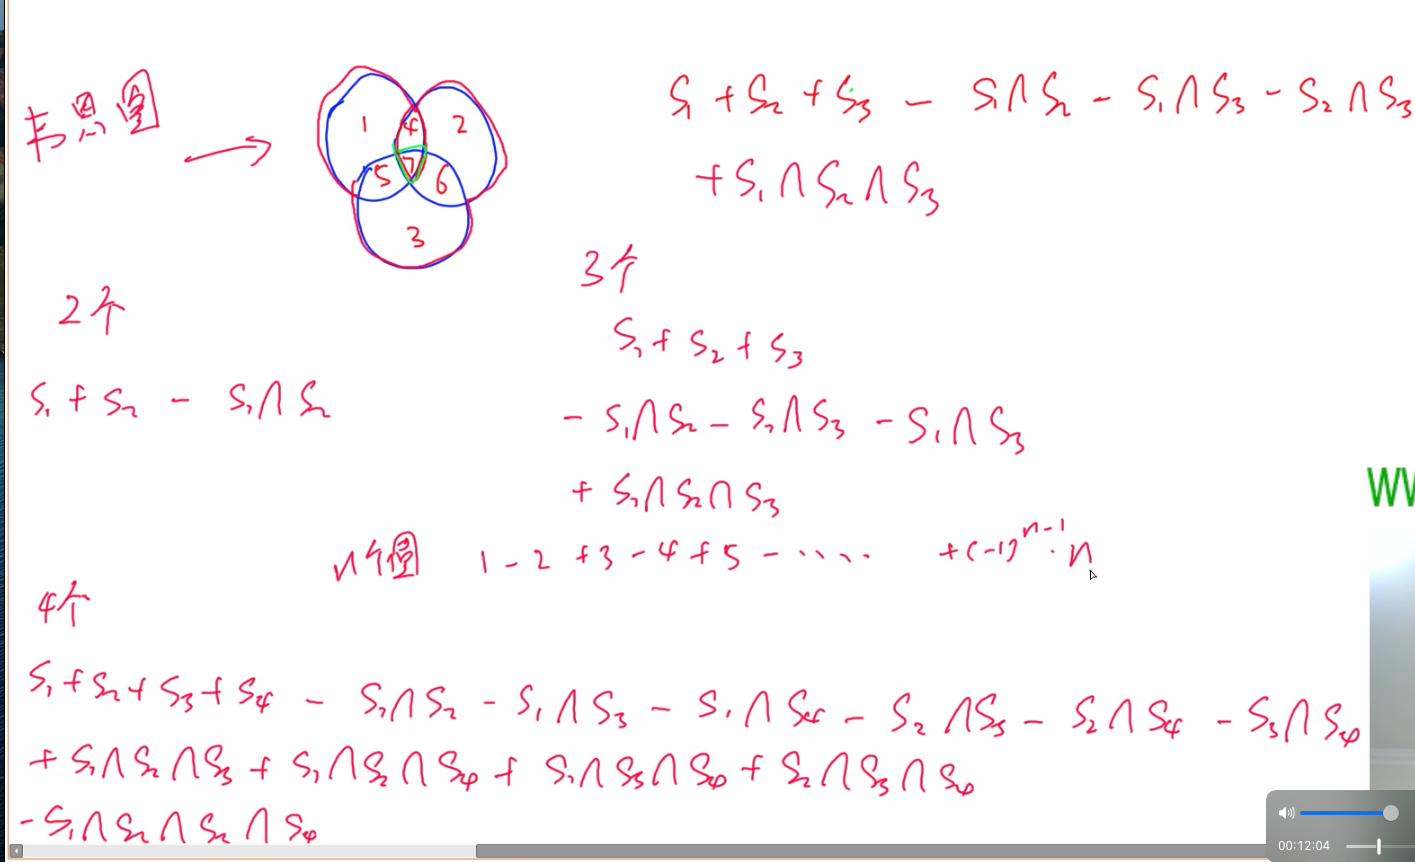 韦恩图
1 4 2
5 7 6
3
S₁ + S₂ + S₃ - S₁∩S₂ - S₁∩S₃ - S₂∩S₃
+ S₁∩S₂∩S₃
2个
S₁ + S₂ - S₁∩S₂
3个
S₁ + S₂ + S₃
- S₁∩S₂ - S₂∩S₃ - S₁∩S₃
+ S₁∩S₂∩S₃
n个圆 1 - 2 + 3 - 4 + 5 - ····· + (-1)ⁿ⁻¹ · n
4个
S₁ + S₂ + S₃ + S₄ - S₁∩S₂ - S₁∩S₃ - S₁∩S₄ - S₂∩S₃ - S₂∩S₄ - S₃∩S₄
+ S₁∩S₂∩S₃ + S₁∩S₂∩S₄ + S₁∩S₃∩S₄ + S₂∩S₃∩S₄
- S₁∩S₂∩S₂∩S₄
00:12:04